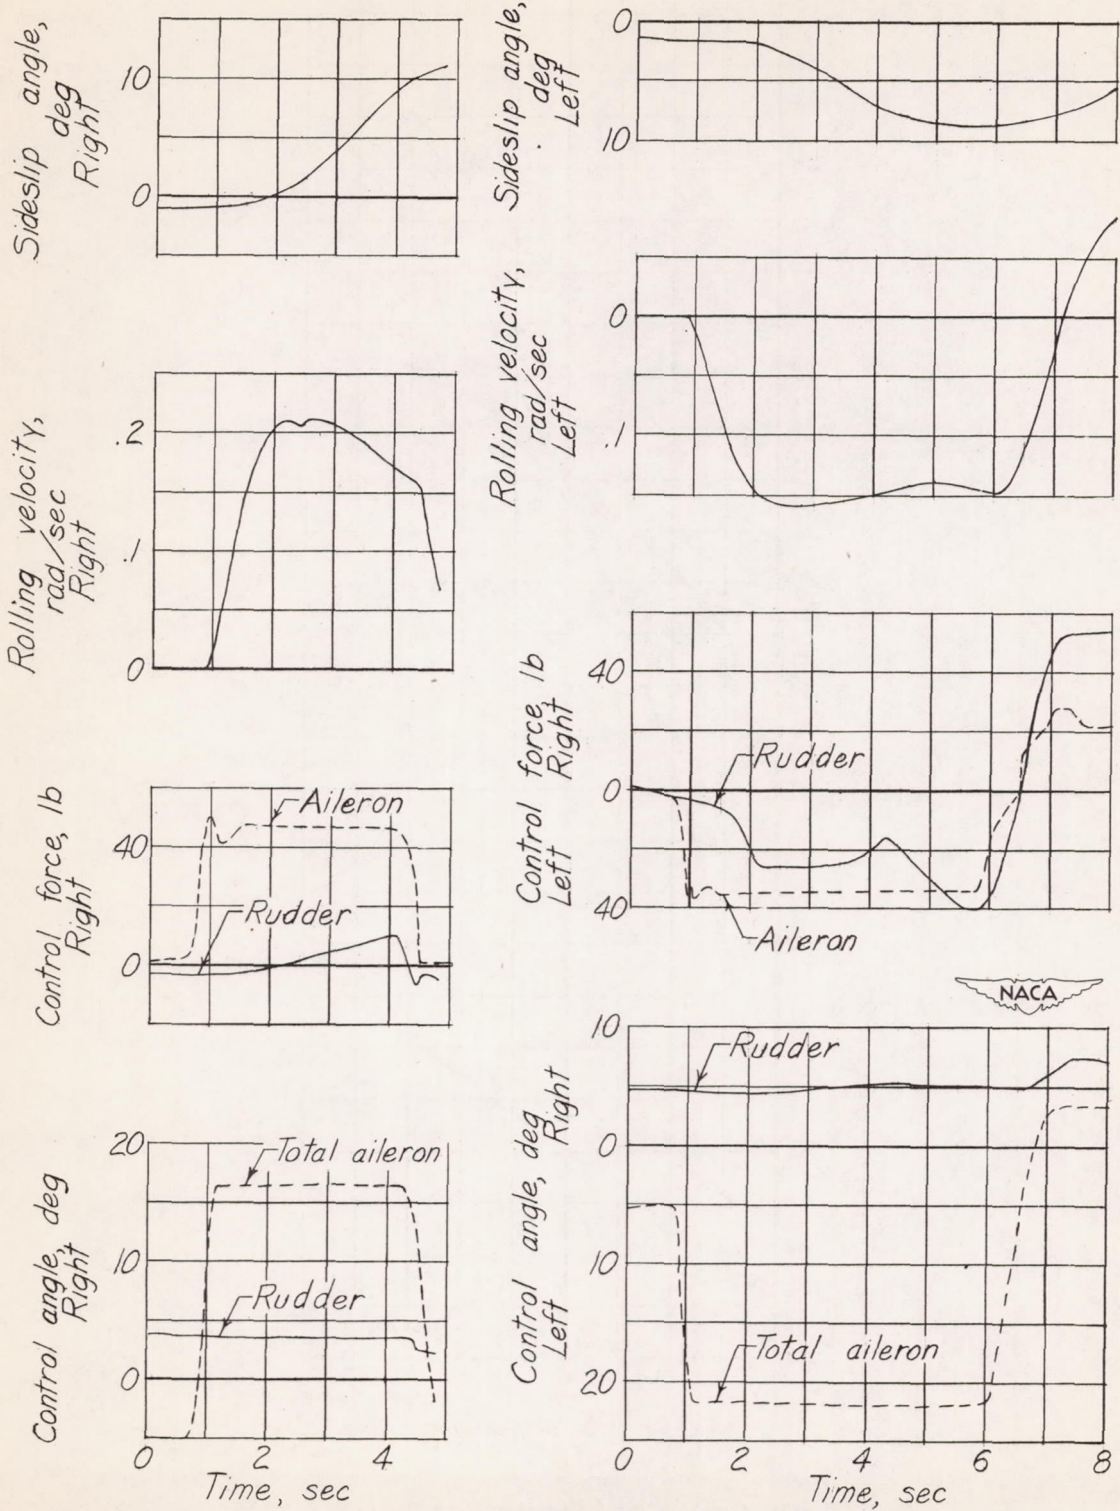 Sideslip angle,
deg
Right
10
0
Rolling velocity,
rad/sec
Right
.2
.1
0
Control force, lb
Right
40
0
Aileron
Rudder
Control angle, deg
Right
20
10
0
Total aileron
Rudder
0 2 4
Time, sec
Sideslip angle,
deg
Left
0
10
Rolling velocity,
rad/sec
Left
0
.1
Control force, lb
Left Right
40
0
40
Rudder
Aileron
NACA
Control angle, deg
Left Right
10
0
10
20
Rudder
Total aileron
0 2 4 6 8
Time, sec